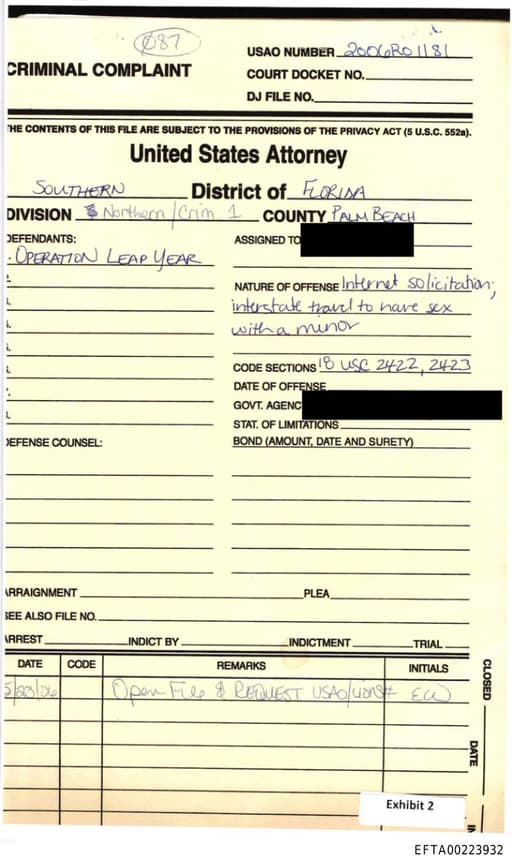 087
USAO NUMBER 2006R01181
CRIMINAL COMPLAINT
COURT DOCKET NO.
DJ FILE NO.
THE CONTENTS OF THIS FILE ARE SUBJECT TO THE PROVISIONS OF THE PRIVACY ACT (5 U.S.C. 552a).
United States Attorney
SOUTHERN District of FLORIDA
DIVISION Northern/Crim 1 COUNTY PALM BEACH
DEFENDANTS:
ASSIGNED TO
. OPERATION LEAP YEAR
NATURE OF OFFENSE Internet solicitation;
interstate travel to have sex
with a minor
CODE SECTIONS 18 USC 2422, 2423
DATE OF OFFENSE
GOVT. AGENC
STAT. OF LIMITATIONS
DEFENSE COUNSEL:
BOND (AMOUNT, DATE AND SURETY)
ARRAIGNMENT PLEA
SEE ALSO FILE NO.
ARREST INDICT BY INDICTMENT TRIAL
DATE CODE REMARKS INITIALS
5/23/06 Open File & REQUEST USAO
CLOSED
DATE
IN
Exhibit 2
EFTA00223932